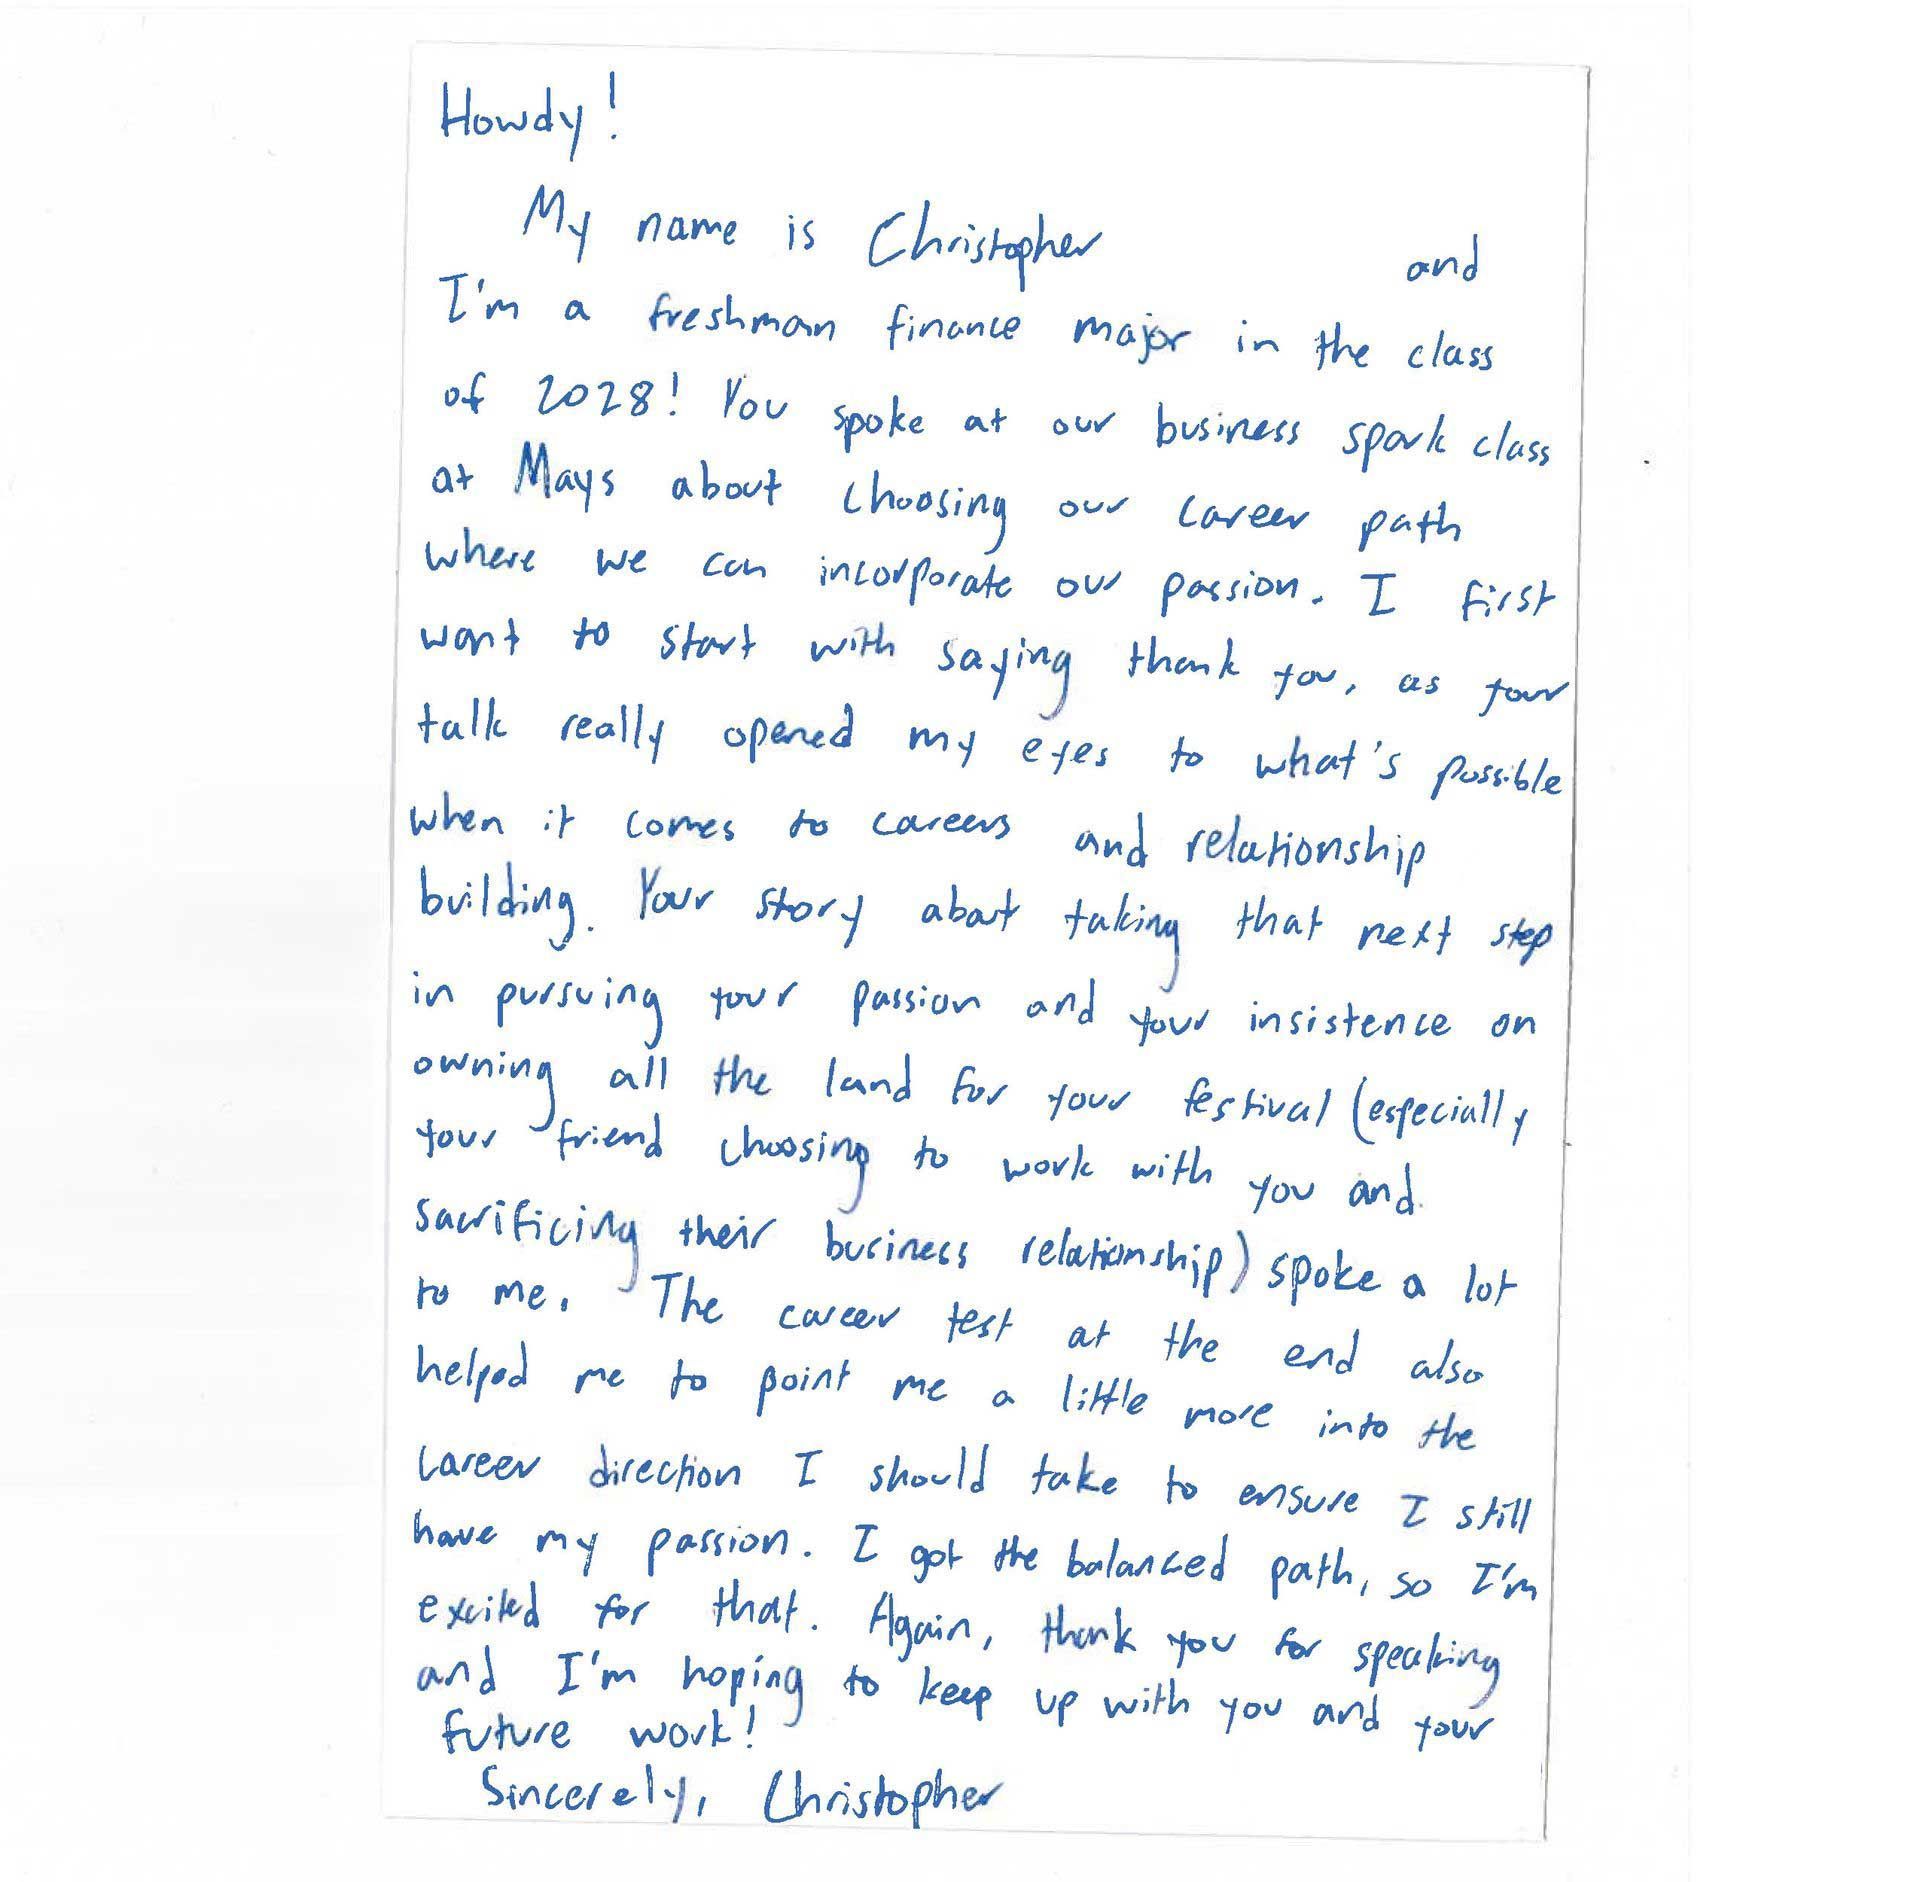 Howdy!
My name is Christopher and
I'm a freshman finance major in the class
of 2028! You spoke at our business spark class
at Mays about choosing our career path
where we can incorporate our passion. I first
want to start with saying thank you, as your
talk really opened my eyes to what's possible
when it comes to careers and relationship
building. Your story about taking that next step
in pursuing your passion and your insistence on
owning all the land for your festival (especially
your friend choosing to work with you and
sacrificing their business relationship) spoke a lot
to me. The career test at the end also
helped me to point me a little more into the
career direction I should take to ensure I still
have my passion. I got the balanced path, so I'm
excited for that. Again, thank you for speaking
and I'm hoping to keep up with you and your
future work!
Sincerely, Christopher